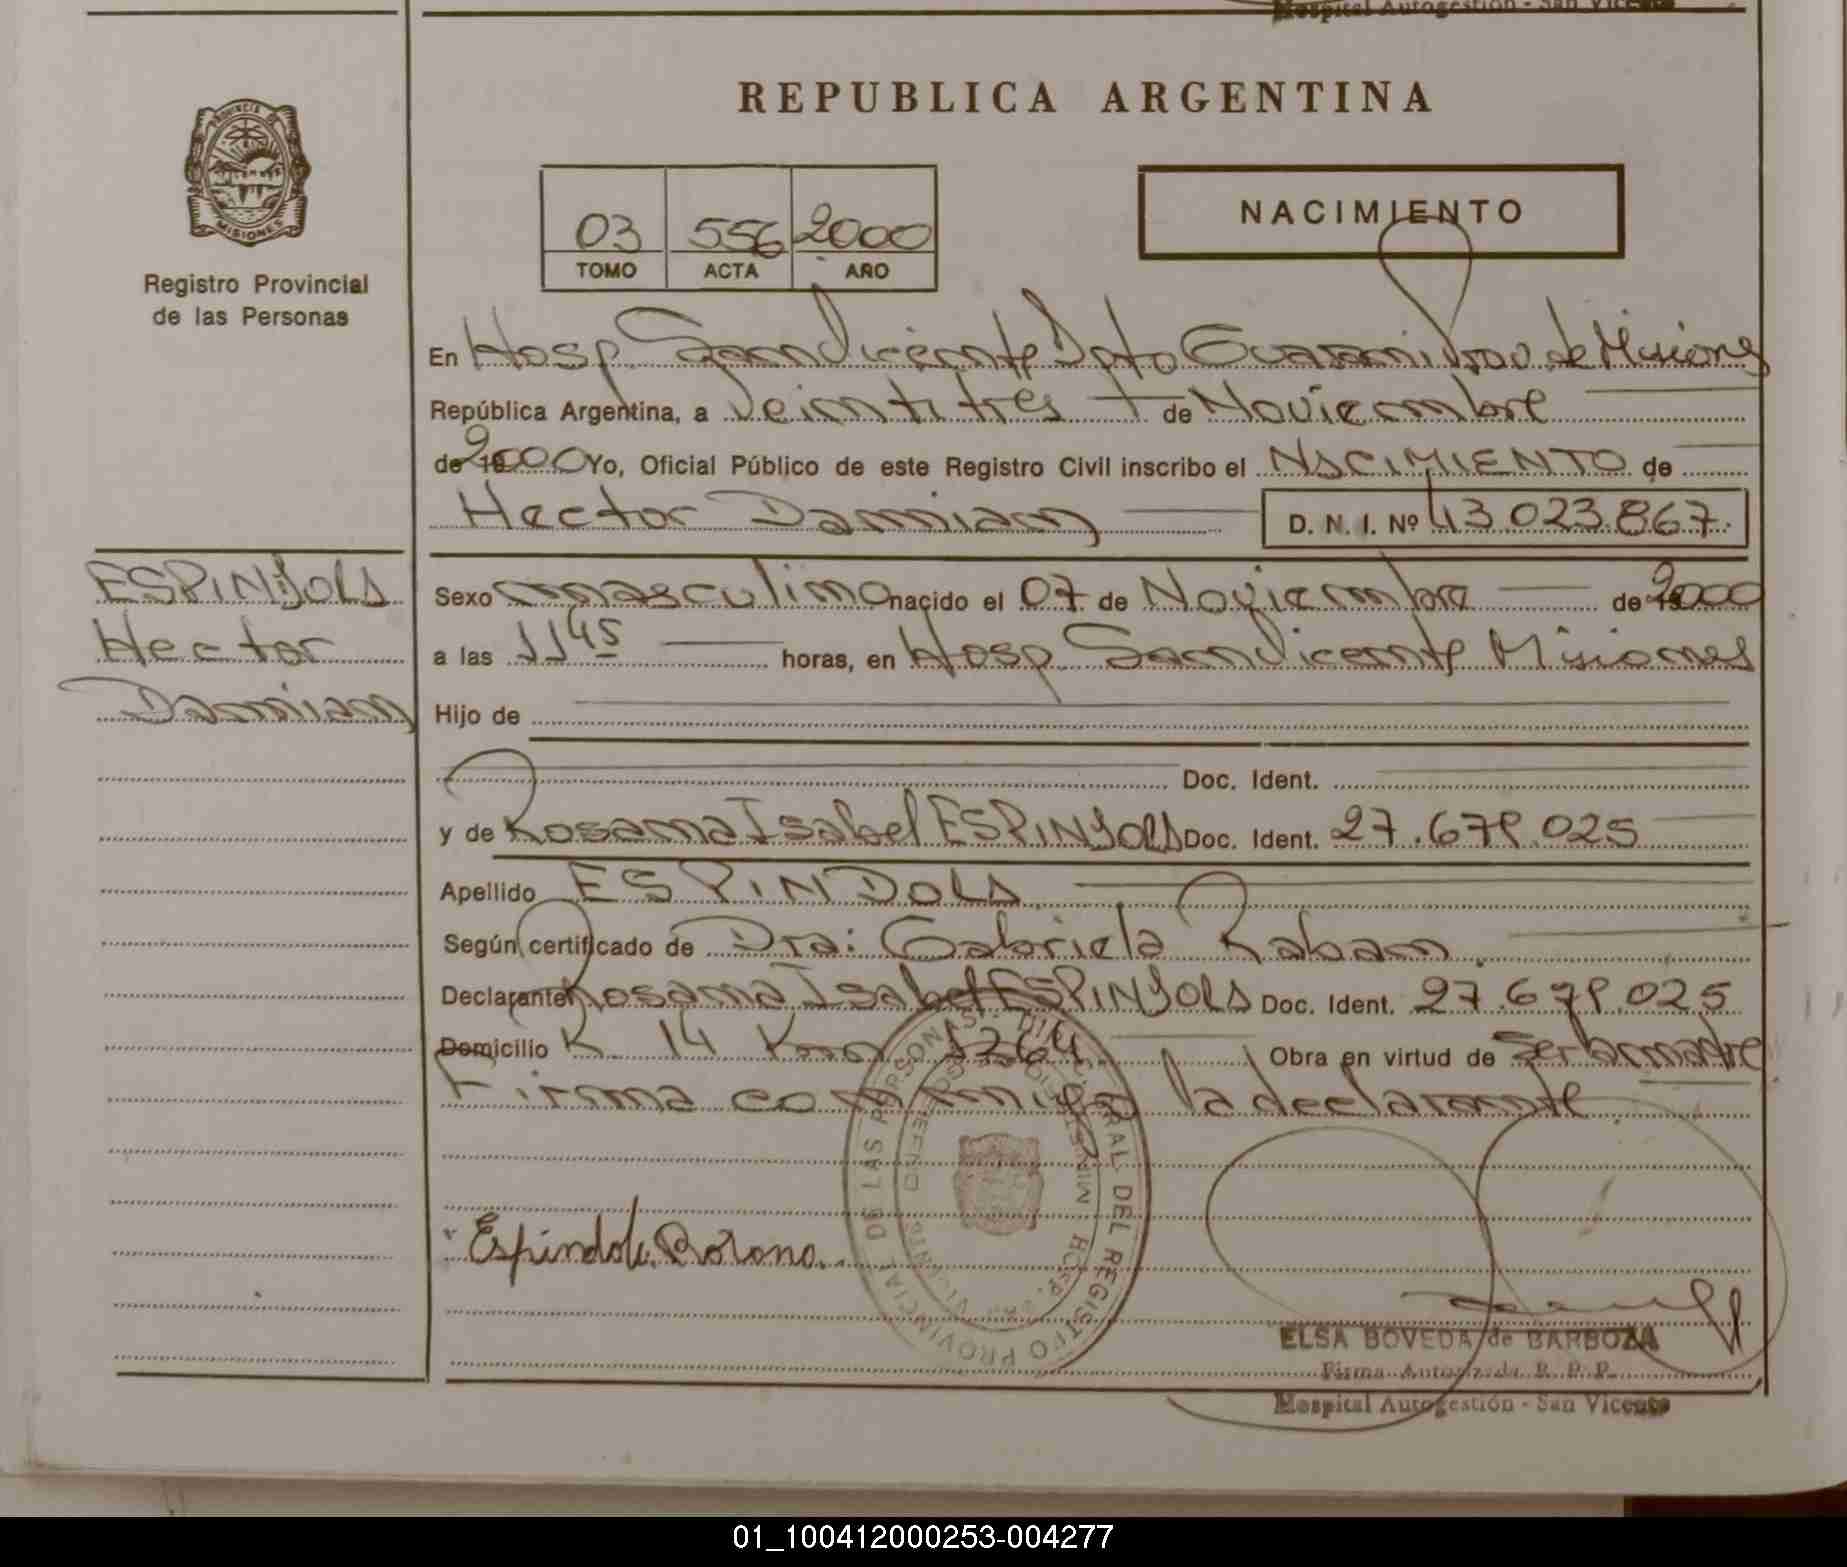 Hospital Autogestión - San Vicente
REPUBLICA ARGENTINA
PROVINCIA DE
MISIONES
Registro Provincial
de las Personas
03 556 2000
TOMO ACTA AÑO
NACIMIENTO
En Hosp. San Vicente Dpto Guaraní Prov. de Misiones
República Argentina, a Veintitres de Noviembre
de 2000 Yo, Oficial Público de este Registro Civil inscribo el NACIMIENTO de
Hector Damian D. N. I. Nº 43.023.867
ESPINDOLA
Hector
Damian
Sexo masculino nacido el 07 de Noviembre de 2000
a las 11 45 horas, en Hosp. San Vicente Misiones
Hijo de
Doc. Ident.
y de Rosana Isabel ESPINDOLA Doc. Ident. 27.679.025
Apellido ESPINDOLA
Según certificado de Dra: Gabriela Raban.
Declarante Rosana Isabel ESPINDOLA Doc. Ident. 27.679.025
Domicilio R. 14 Km 1264 Obra en virtud de ser la madre
Firma conmigo la declarante.
Espindola Rosana.
PROVINCIAL DE LAS PERSONAS
GRAL. DEL REGISTRO
HOSP. SAN VICENTE
ELSA BOVEDA de BARBOZA
Firma Autorizada R. P. P.
Hospital Autogestión - San Vicente
01_100412000253-004277